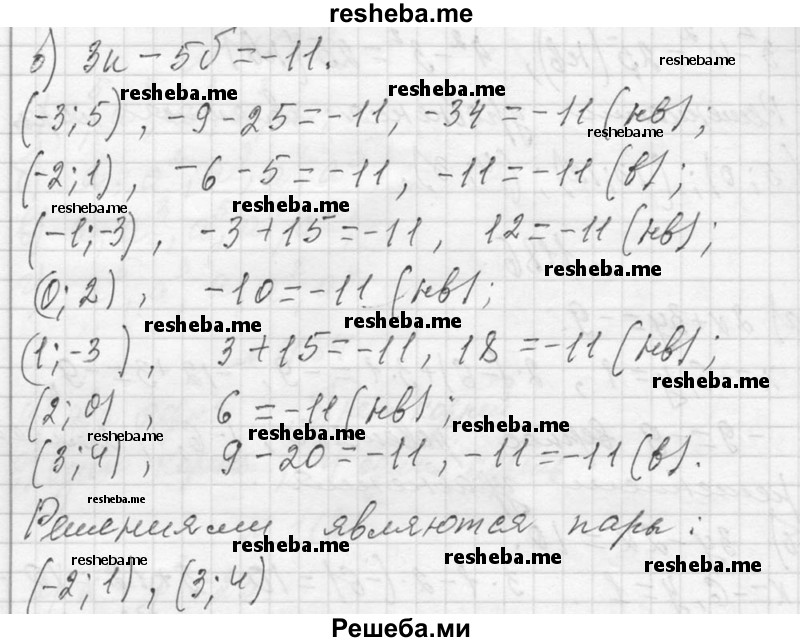 resheba.me
б) 3u - 5б = -11.
resheba.me
resheba.me resheba.me
(-3; 5), -9 - 25 = -11, -34 = -11 (нв);
resheba.me
(-2; 1), -6 - 5 = -11, -11 = -11 (в);
resheba.me resheba.me
(-1; -3), -3 + 15 = -11, 12 = -11 (нв);
resheba.me
(0; 2), -10 = -11 (нв);
resheba.me resheba.me
(1; -3), 3 + 15 = -11, 18 = -11 (нв);
resheba.me
(2; 0), 6 = -11 (нв);
resheba.me resheba.me resheba.me
(3; 4), 9 - 20 = -11, -11 = -11 (в).
resheba.me
Решениями являются пары:
resheba.me resheba.me resheba.me resheba.me
(-2; 1), (3; 4)
Решеба.ми